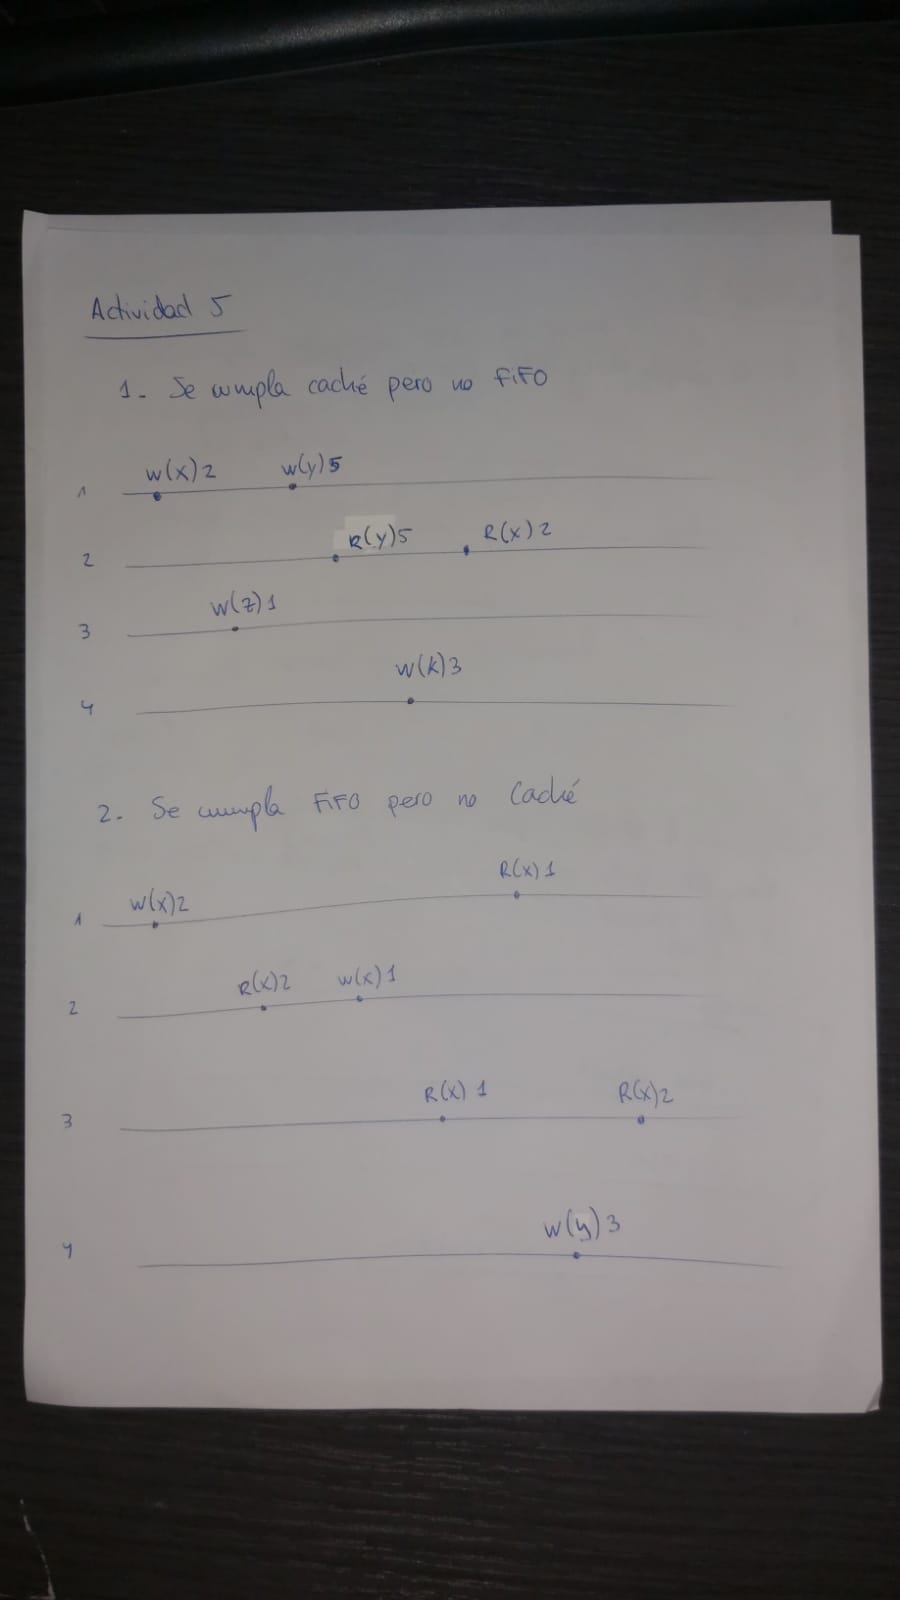 Actividad 5
1. Se cumpla caché pero no FiFO
W(x)2 W(y)5
1
R(y)5 R(x)2
2
W(z)1
3
W(k)3
4
2. Se cumpla FiFO pero no Caché
R(x)1
W(x)2
1
R(x)2 W(x)1
2
R(x)1 R(x)2
3
W(y)3
4